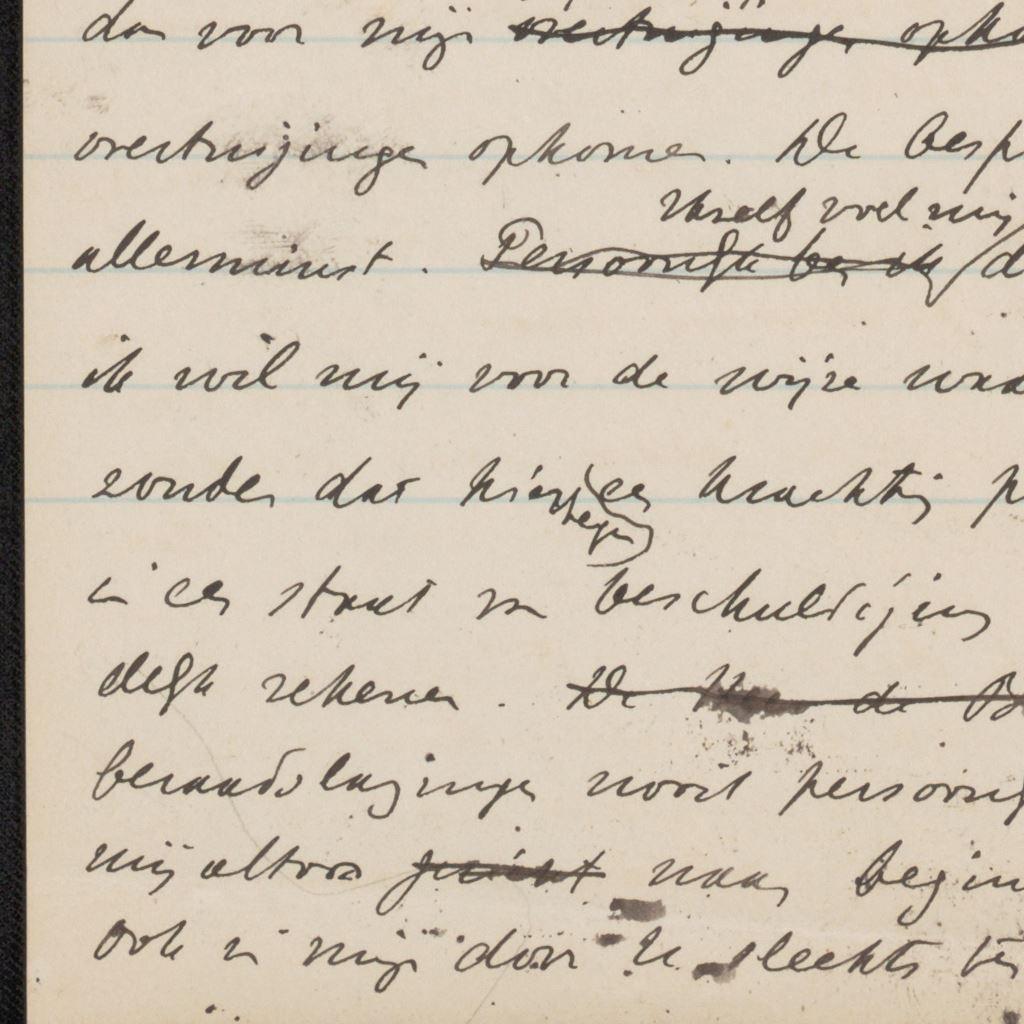 dan voor mijn overtuigingen opko
overtuigingen opkomen. De besp
ikzelf voel mij
allerminst. Persoonlijk ben ik d
ik wil mij voor de wijze waa
zonder dat hiertegen krachtig p
in een staat van beschuldiging
delijk rekenen. De de B
beraadslagingen nooit persoonlij
mij altoos gericht naar begin
ook in mijn door U slechts be